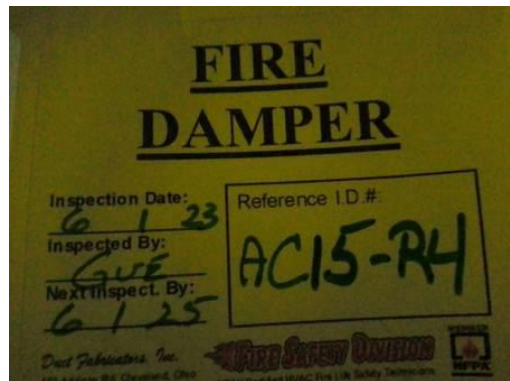 FIRE
DAMPER
Inspection Date:
6 1 23
Inspected By:
GUE
Next Inspect. By:
6 1 25
Reference I.D.#:
AC15-R4
Duct Fabricators, Inc.
FIRE SAFETY DIVISION
Cleveland, Ohio
HVAC Fire Life Safety Technicians
MEMBER
NFPA